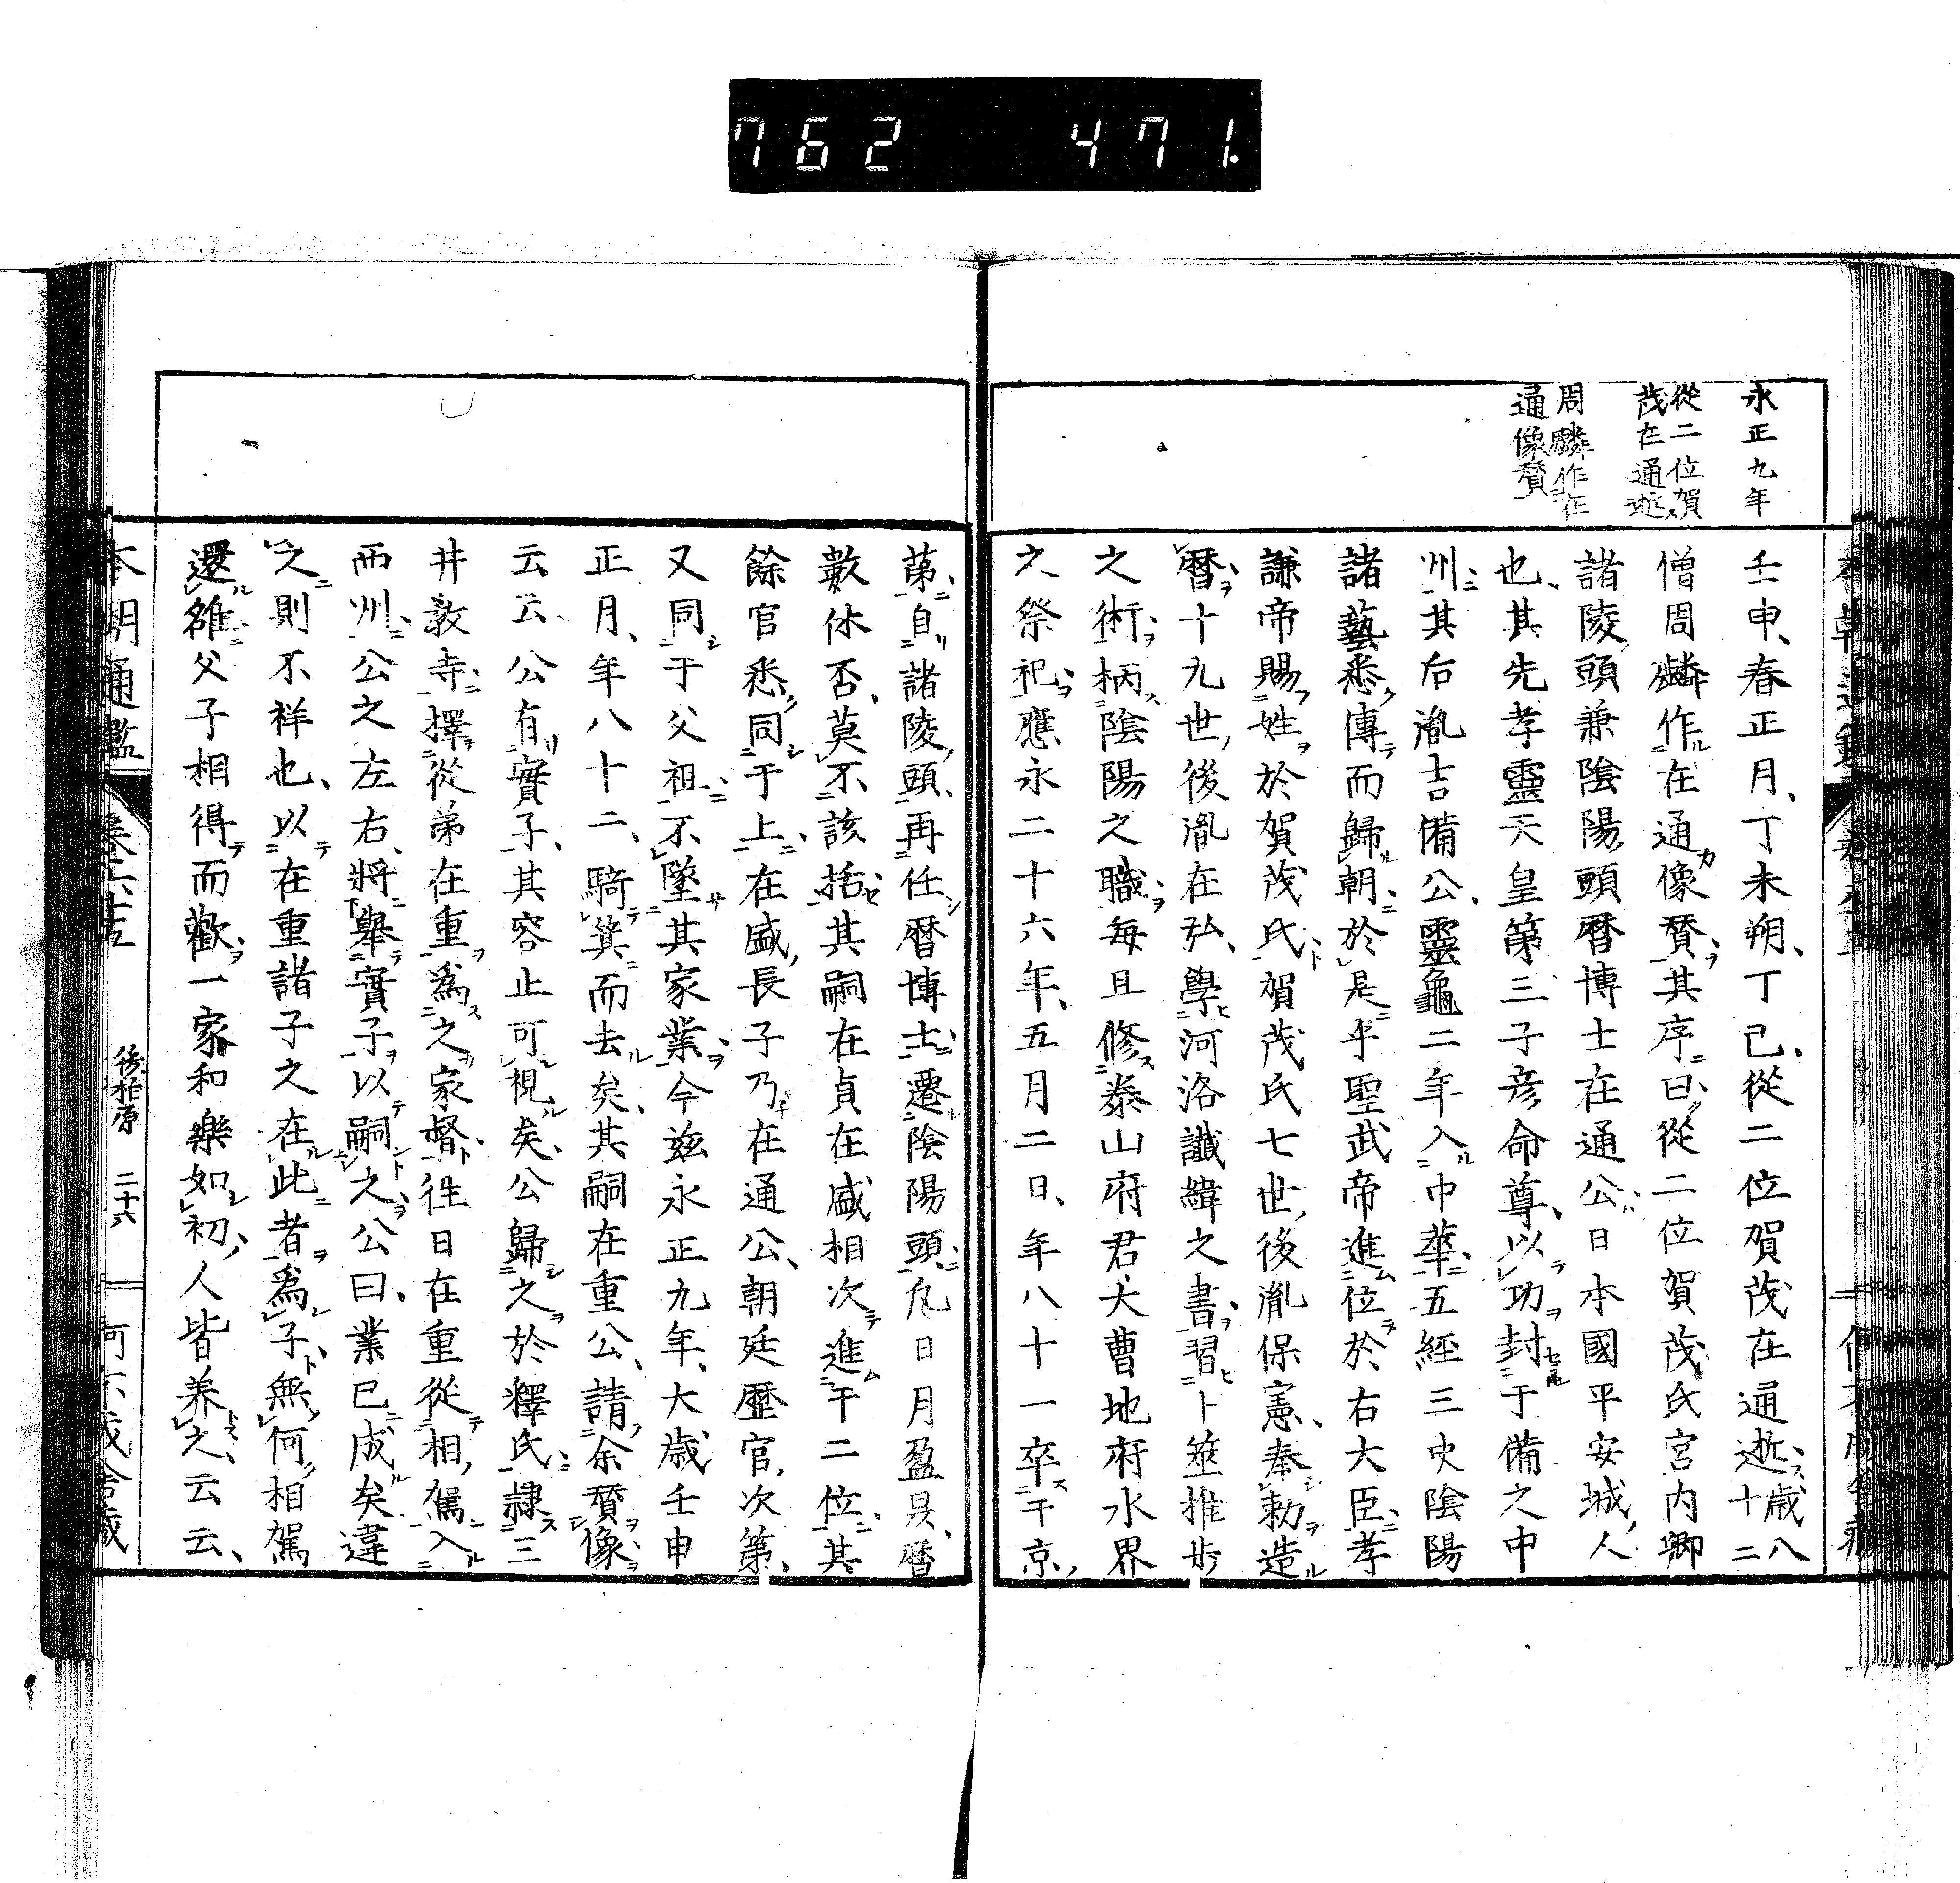 762 471.
永正九年
從二位賀
茂在通逝
周麟作在
通像賛
壬申、春正月、丁未朔、丁巳、從二位賀茂在通逝、歳八十二
僧周麟作在通像賛、其序曰、從二位賀茂氏宮内卿
諸陵頭兼陰陽頭暦博士在通公、日本國平安城人
也、其先孝靈天皇第三子彦命尊、以功封于備之中
州、其后胤吉備公、靈龜二年入中華、五經三史陰陽
諸藝悉傳而歸朝、於是乎聖武帝進位於右大臣、孝
謙帝賜姓於賀茂氏、賀茂氏七世後胤保憲、奉勅造
暦、十九世後胤在弘、學河洛讖緯之書、習卜筮推歩
之術、柄陰陽之職、毎旦修泰山府君天曹地府水界
之祭祀、應永二十六年、五月二日、年八十一卒于京、
第、自諸陵頭、再任暦博士、遷陰陽頭、凡日月盈昃、暦
數休否、莫不該括、其嗣在貞在盛相次進于二位、其
餘官悉同于上、在盛長子乃在通公、朝廷歴官次第、
又同于父祖、不墜其家業、今茲永正九年、大歳壬申
正月、年八十二、騎箕而去矣、其嗣在重公、請余賛像
云云、公有實子、其容止可視矣、公歸之於釋氏、隷三
井教寺、擇從弟在重爲之家督、徃日在重從相駕入
西州、公之左右、將擧實子以嗣之、公曰、業已成矣、違
之則不祥也、以在重諸子之在此者爲子、無何相駕
還、雖父子相得而歡、一家和樂如初、人皆養之云云、
本朝通鑑
卷六十五
後柏原
二十六